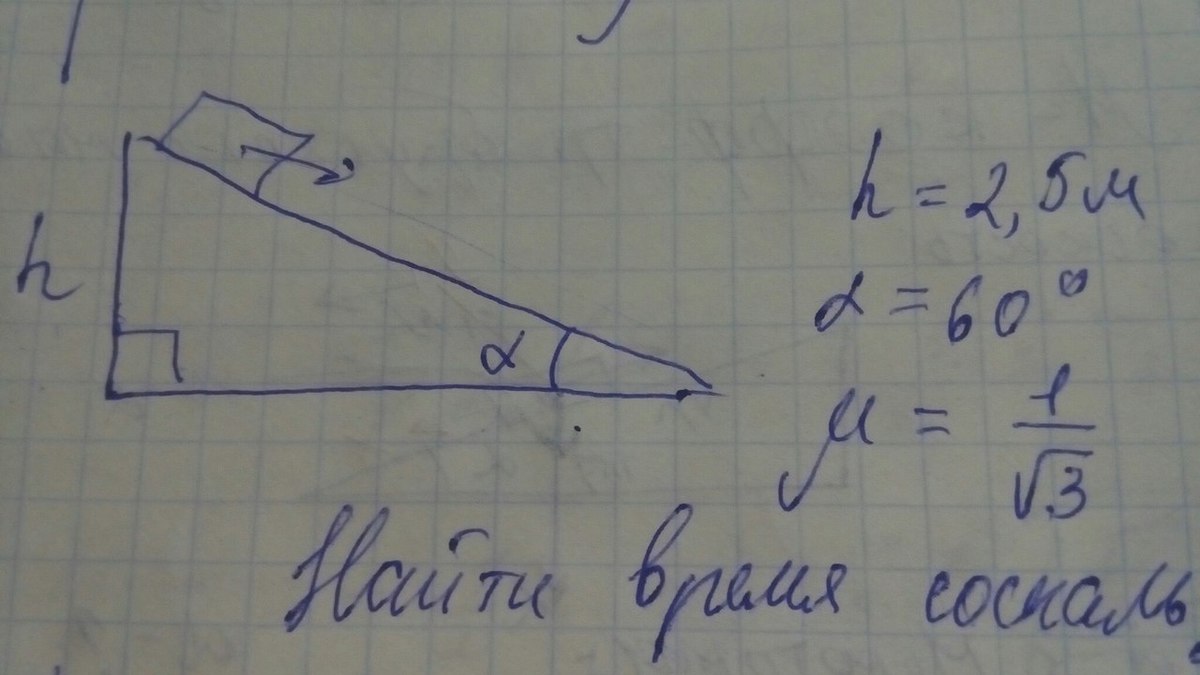 h
α
h = 2,5м
α = 60°
μ = 1/√3
Найти время соскаль